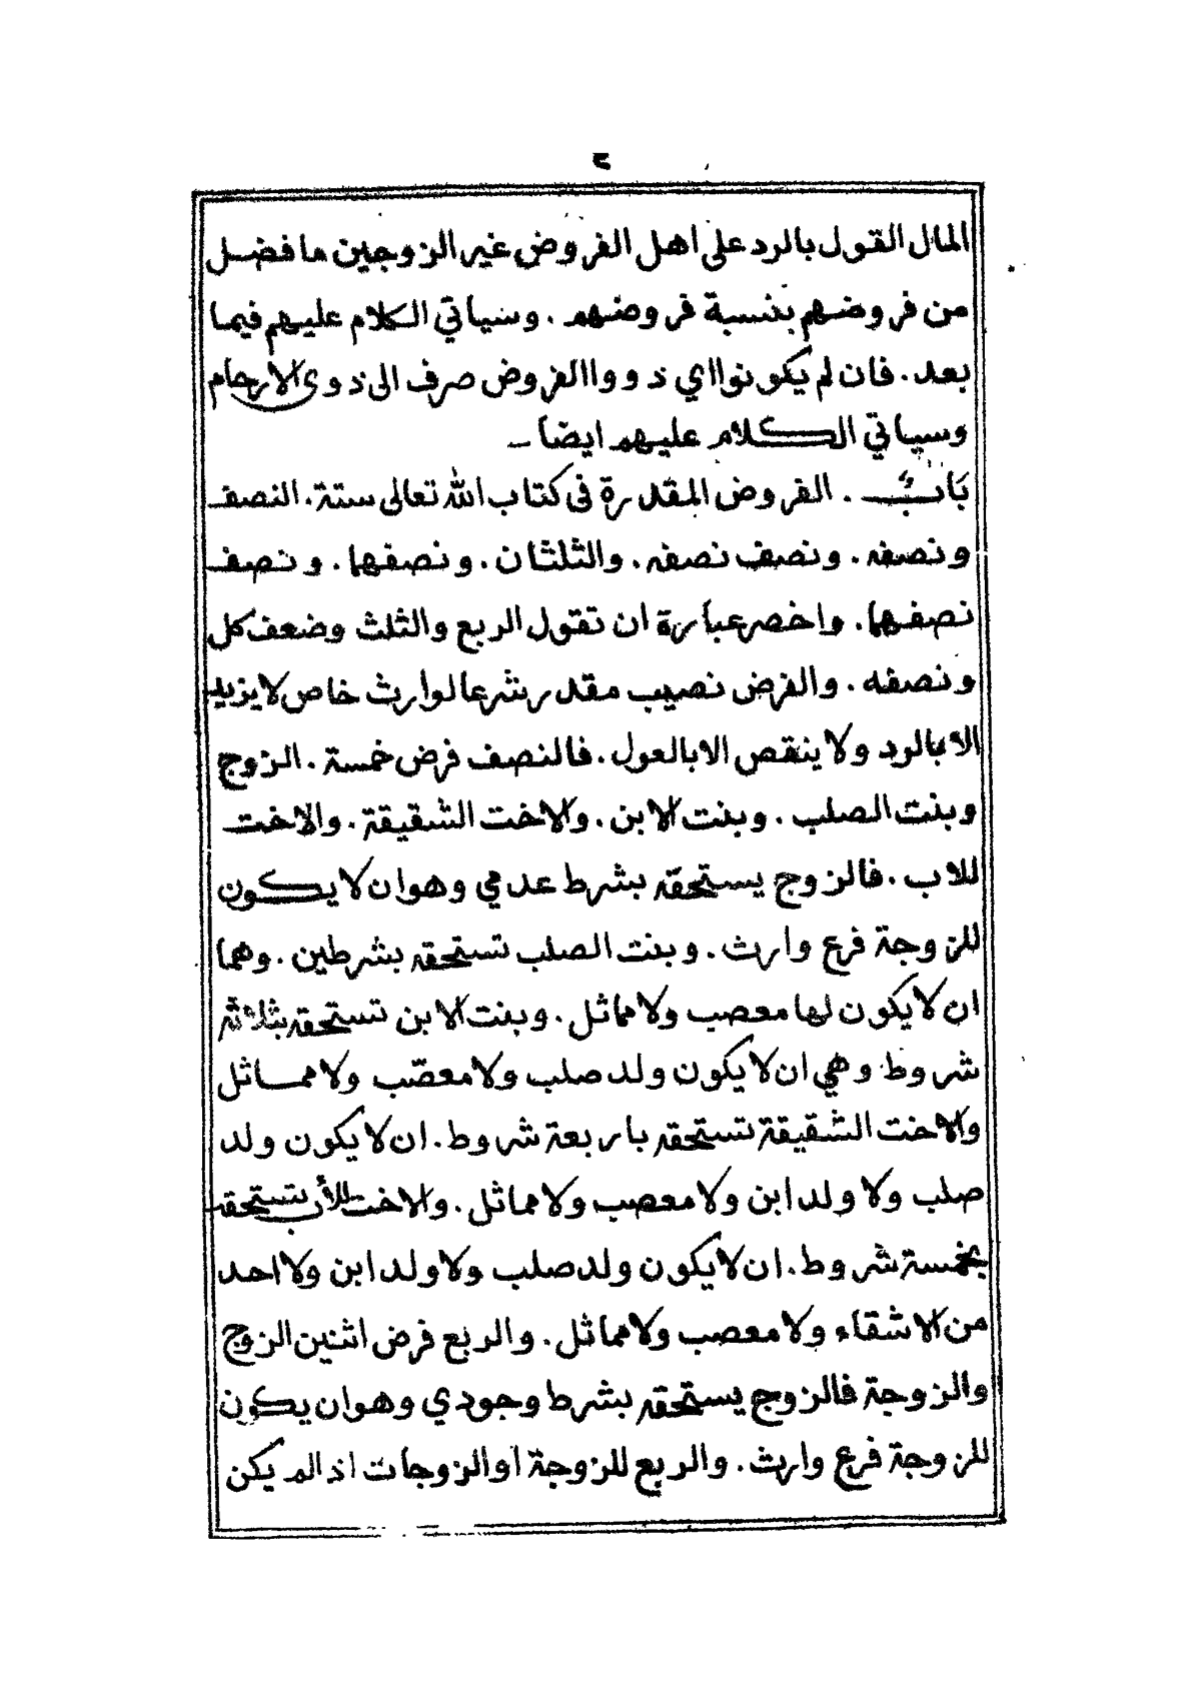 المال القول بالرد على اهل الفروض غير الزوجين ما فضل
من فروضهم بنسبة فروضهم . وسياتي الكلام عليهم فيما
بعد . فان لم يكونوا اي ذووا الفروض صرف الى ذوى الارحام
وسياتي الكلام عليهم ايضا –
بَابٌ . الفروض المقدرة في كتاب الله تعالى ستة . النصف
ونصفه . ونصف نصفه . والثلثان . ونصفها . ونصف
نصفها . واخصر عبارة ان تقول الربع والثلث وضعف كل
ونصفه . والفرض نصيب مقدر شرعا لوارث خاص لا يزيد
الا بالرد ولا ينقص الا بالعول . فالنصف فرض خمسة . الزوج
وبنت الصلب . وبنت الابن . والاخت الشقيقة . والاخت
للاب . فالزوج يستحقه بشرط عدمي وهو ان لا يكون
للزوجة فرع وارث . وبنت الصلب تستحقه بشرطين . وهما
ان لا يكون لها معصب ولا مماثل . وبنت الابن تستحقه بثلاثة
شروط وهي ان لا يكون ولد صلب ولا معصّب ولا مماثل
والاخت الشقيقة تستحقه باربعة شروط . ان لا يكون ولد
صلب ولا ولد ابن ولا معصب ولا مماثل . والاخت للأب تستحقه
بخمسة شروط . ان لا يكون ولد صلب ولا ولد ابن ولا احد
من الاشقاء ولا معصب ولا مماثل . والربع فرض اثنين الزوج
والزوجة فالزوج يستحقه بشرط وجودي وهو ان يكون
للزوجة فرع وارث . والربع للزوجة او الزوجات اذا لم يكن